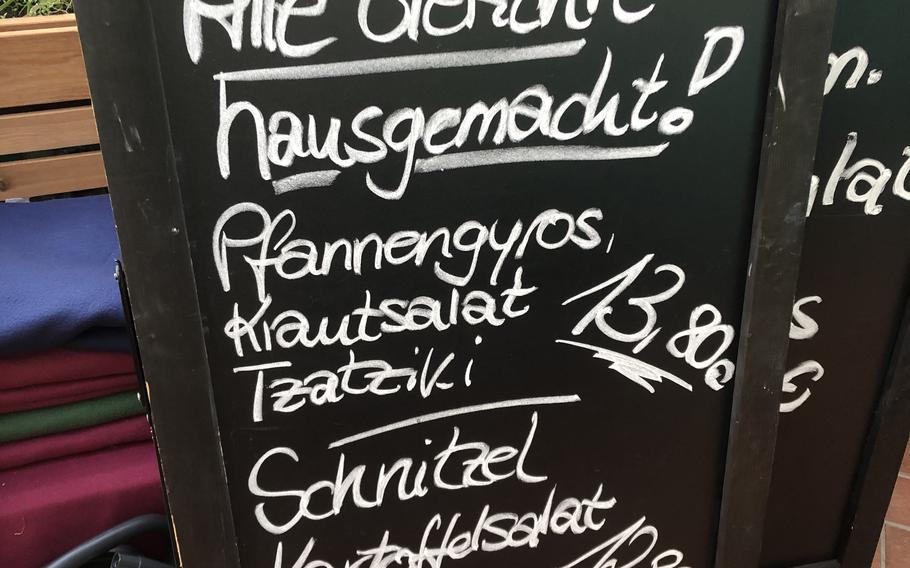 Alle Gerichte
hausgemacht!
Pfannengyros,
Krautsalat
Tzatziki
13,80
Schnitzel
Kartoffelsalat